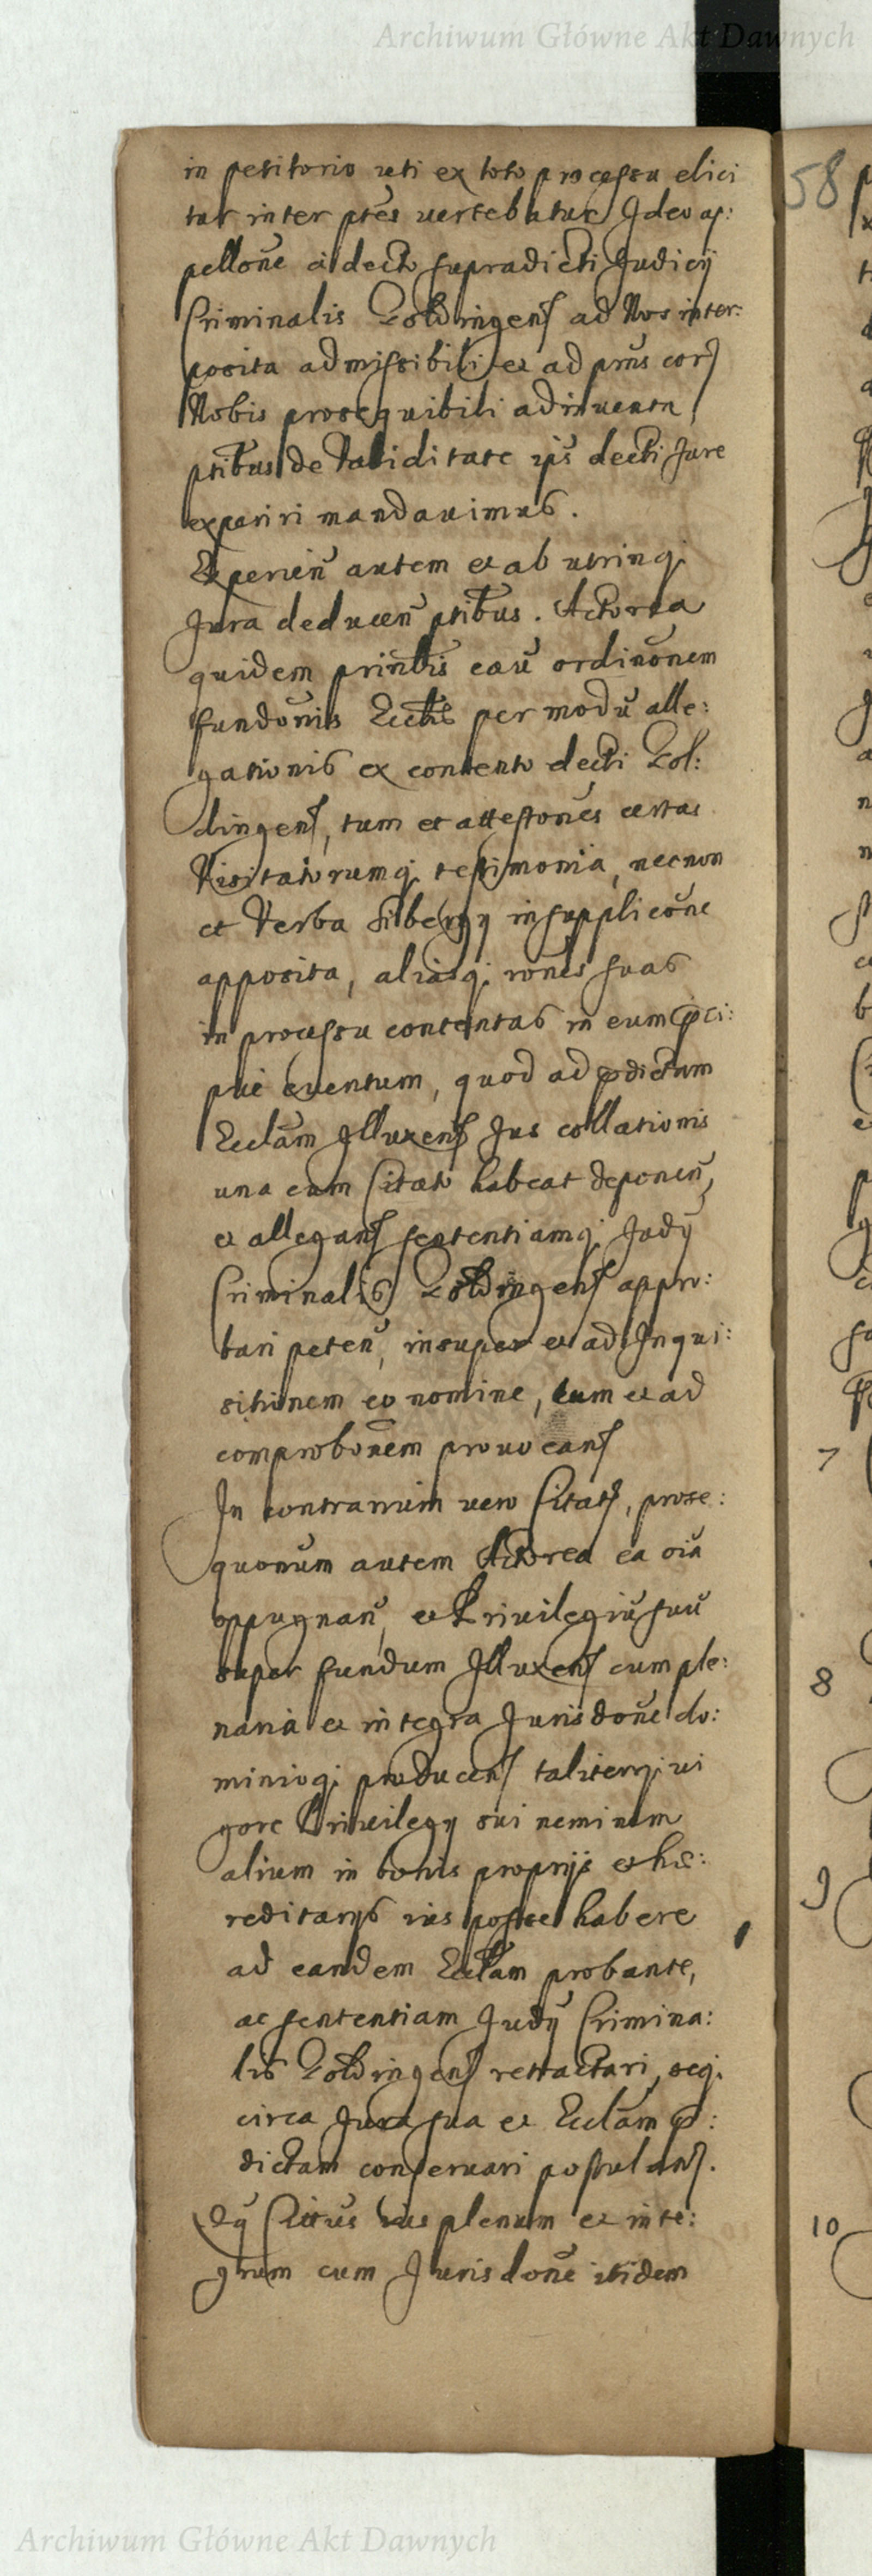 Archiwum Główne Akt Dawnych
in petitorio uti ex toto processu elici
tur inter ptēs vertebatur Ideo ap:
pellonē a decto supradicti Judicij
Criminalis Goldingens ad Nos inter:
posita admissibili et ad prn̄s cor
Nobis prosequibili adinventa,
ptibus de Validitate ips decti Jure
experiri mandavimus.
Experien̄ autem et ab utrinq
Jura deducen̄ ptibus. Actorea
quidem ordinōnem
fundōnis Ecclīs per modū alle:
gationis ex contento decti Gol:
dingens, tum et attestōnes certas
Visitatorumq testimonia, necnon
et Verba Silbergy in supplicōne
apposita, aliasq rōnes suas
in processu contentas in eum pci:
pue eventum, quod ad pdictam
Ecclām Illuxens Jus collationis
una cum Citato habeat deponen̄,
et allegans sententiamq Judij
Criminalis Goldingens appro:
bari peten̄, insuper et ad Inqui:
sitionem eo nomine, tum et ad
comprobōnem provocans
In contrarium vero Citats, prose:
quonum autem Actorea ea oīa
oppugnan̄, et Privilegiū suū
super fundum Illuxens cum ple:
naria et integra Jurisdonē do:
minioq producens taliterq vi
gore Privilegy sui neminem
alium in bonis proprijs et hæ:
reditarijs ius posse habere
ad eandem Ecclam probante,
ac sententiam Judij Crimina:
lis Goldingens retractari, seq
circa Jura sua et Ecclām p:
dictam conservari postulans.
Citūs ius plenum et inte:
grum cum Jurisdonē itidem
58
7
8
9
10
Archiwum Główne Akt Dawnych